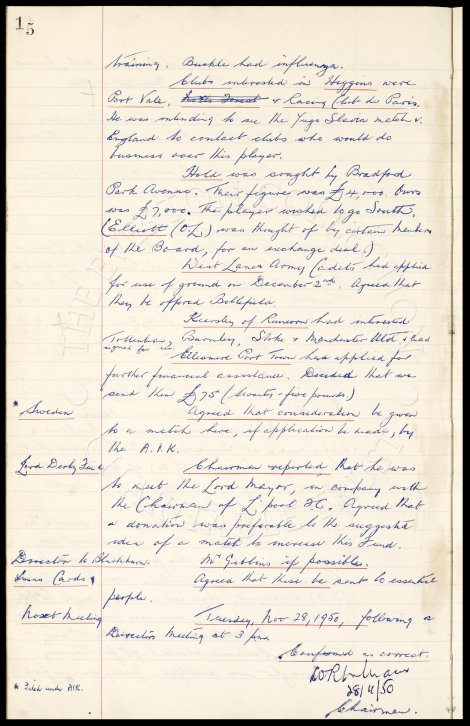 15
training. Buckle had influenza.
Clubs interested in Higgins were
Port Vale, Notts Forest & Racing Club de Paris.
He was intending to see the Yugo Slavia match v.
England to contact clubs who would do
business over this player.
Hold was sought by Bradford
Park Avenue. Their figure was £4,000. Ours
was £7,000. The player wished to go South.
(Elliott (O.L.) was thought of by certain members
of the Board, for an exchange deal.)
West Lancs Army Cadets had applied
for use of ground on December 2nd. Agreed that
they be offered Bellefield.
Kearsley of Runcorn had interested
Tottenham, Burnley, Stoke & Manchester Utd & had
signed for us.
Ellesmere Port Town had applied for
further financial assistance. Decided that we
send them £75 (seventy-five pounds.)
* Sweden Agreed that consideration be given
to a match here, if application be made, by
the A.I.K.
Lord Derby Fund Chairman reported that he was
to meet the Lord Mayor, in company with
the Chairman of L'pool F.C. Agreed that
a donation was preferable to the suggested
idea of a match to increase this Fund.
Director to Blackburn. Mr Gibbins if possible.
Xmas Cards Agreed that these be sent to essential
people.
Next Meeting Tuesday, Nov 28, 1950, following a
Directors Meeting at 3 p.m.
Confirmed as correct.
28/11/50
* Filed under AIK.
Chairman.